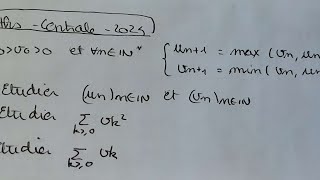 - Centrale - 2024
>v0>0 et ∀n∈IN* { un+1 = max (vn, un
vn+1 = min (vn, un
Etudier (un)n∈IN et (vn)n∈IN
Etudier ∑k≥0 vk²
Etudier ∑k≥0 vk